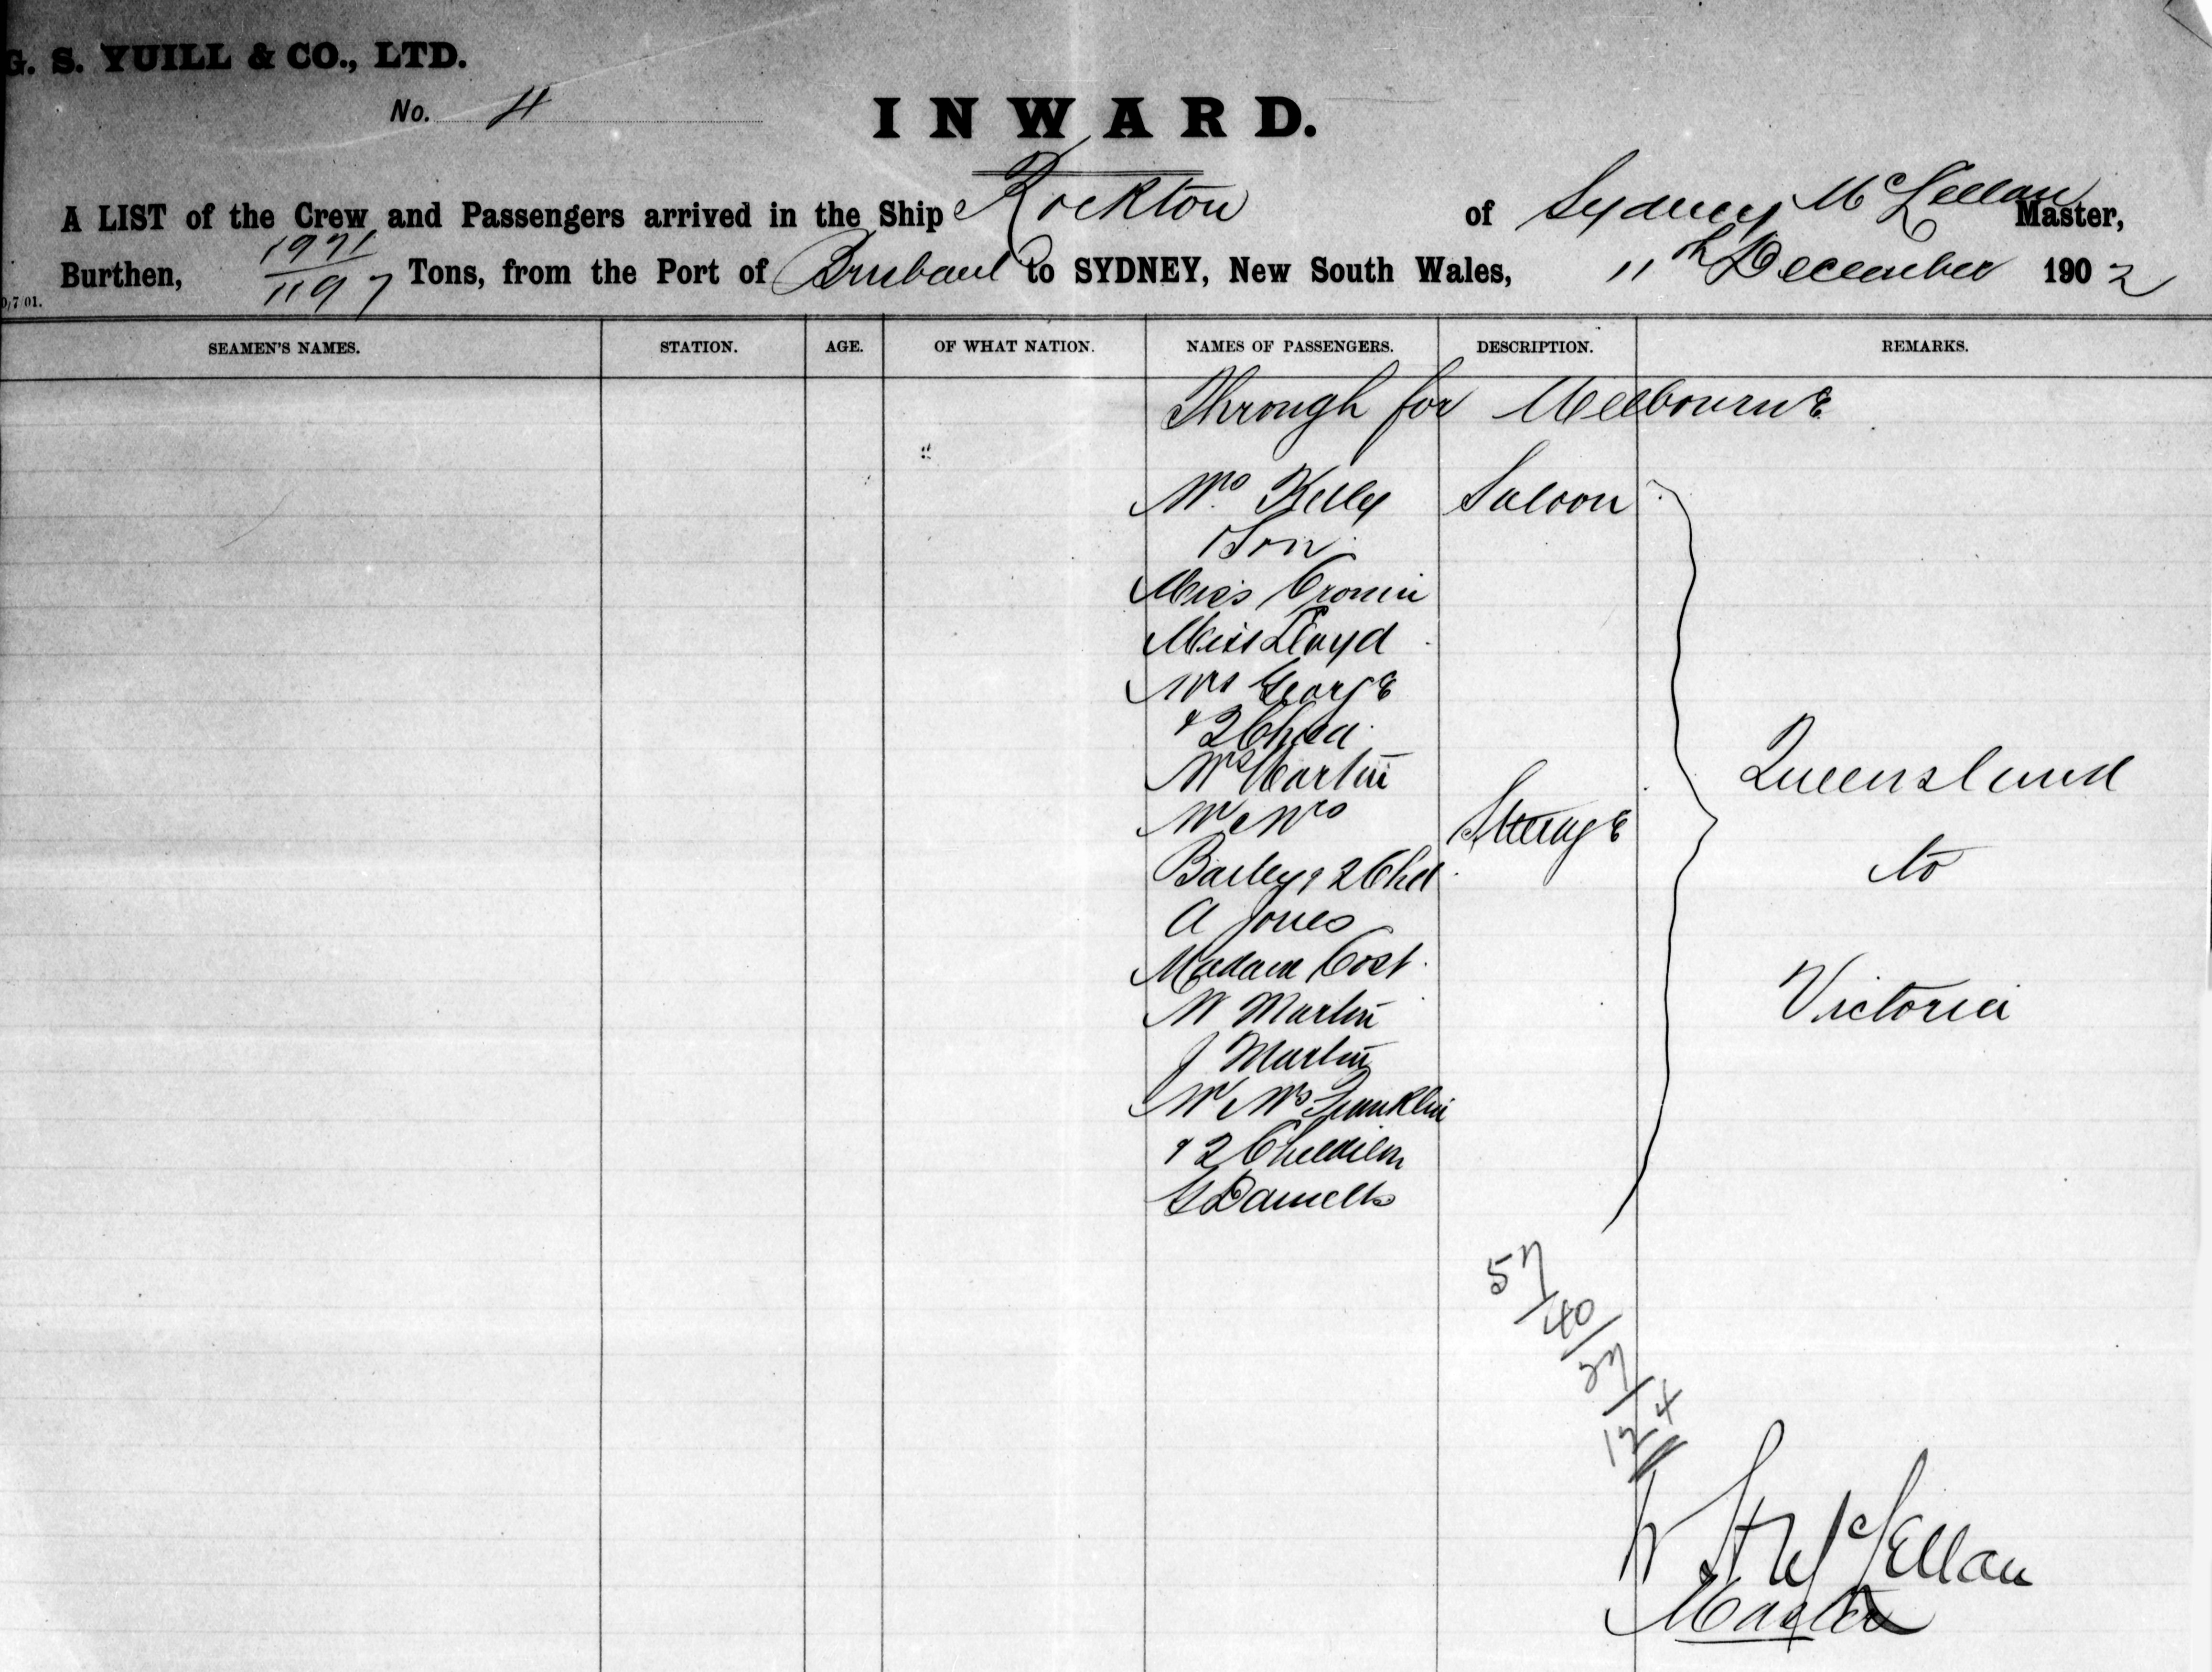 G. S. YUILL & CO., LTD.
No. 4
INWARD.
A LIST of the Crew and Passengers arrived in the Ship Rockton of Sydney McLellan Master,
Burthen, 1971/1197 Tons, from the Port of Brisbane to SYDNEY, New South Wales, 11th December 1902
0/7 01.
SEAMEN'S NAMES. STATION. AGE. OF WHAT NATION. NAMES OF PASSENGERS. DESCRIPTION. REMARKS.
Through for Melbourne
Mrs Kelly Saloon
Son
Miss Cronin
Miss Lloyd
Mrs George
& 2 Chd
Mrs Martin
Mr & Mrs Steerage
Barley & 2 Chd
A Jones
Madam Cost
W Martin
J Martin
Mr & Mrs Franklin
& 2 Children
G Daniells
Queensland
to
Victoria
57
40
27
124
McLellan
Master